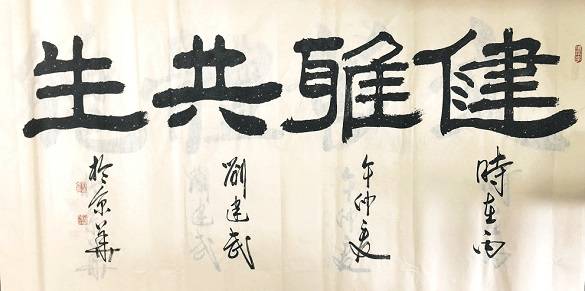 健雅共生
時在丙
午仲夏
劉建武
於京華